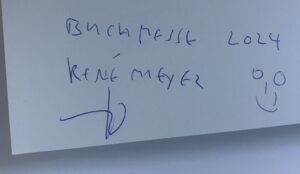 BUCHMESSE 2024
RENÉ MEYER